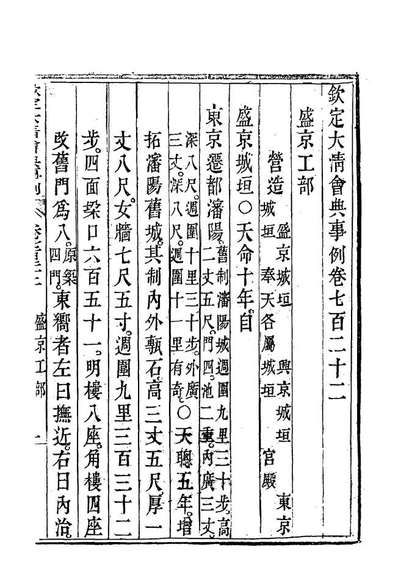 欽定大清會典事例卷七百二十二
盛京工部
營造
盛京城垣 興京城垣 東京
城垣 奉天各屬城垣 宮殿
盛京城垣〇天命十年。自
東京遷都瀋陽。
舊制瀋陽城週圍九里三十步。高
二丈五尺。門四。池二重。內廣三丈。
深八尺。週圍十里三十步。外廣
三丈。深八尺。週圍十一里有奇。
〇天聰五年。增
拓瀋陽舊城。其制內外甎石。高三丈五尺。厚一
丈八尺。女牆七尺五寸。週圍九里三百三十二
步。四面垜口六百五十一。明樓八座。角樓四座
改舊門爲八。
原築
四門。
東嚮者左曰撫近。右曰內治。
盛京工部
一